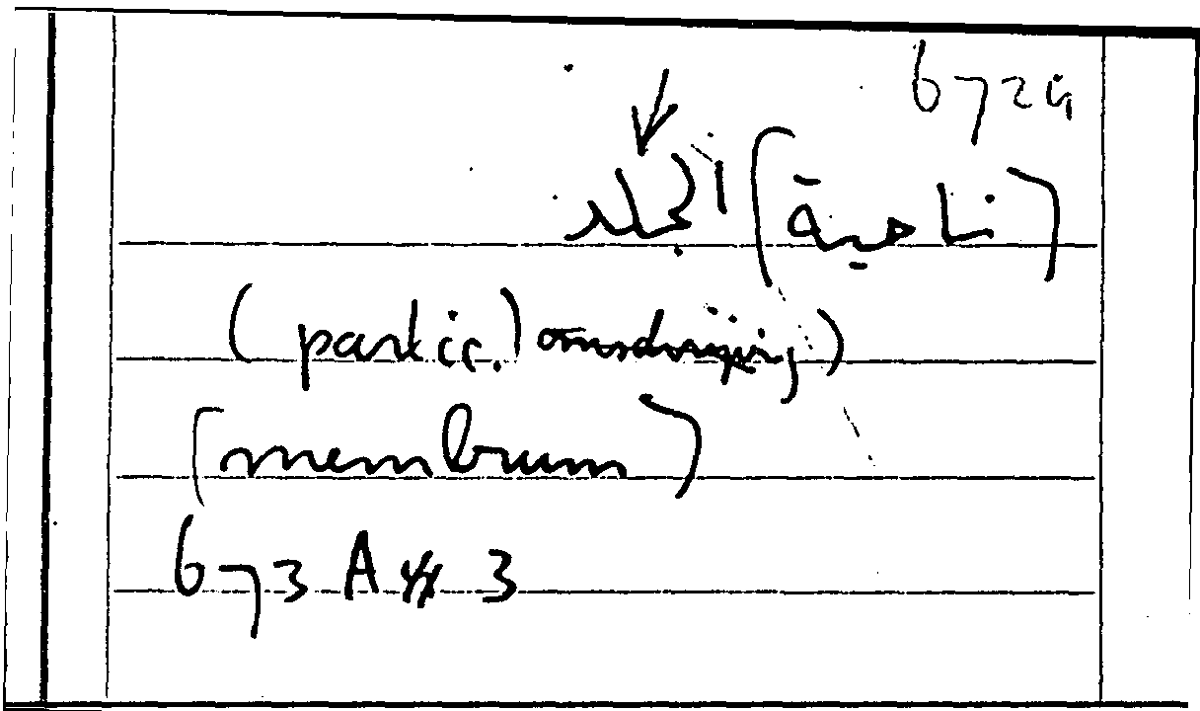 6729
(ناحية) الجلد
(partic.) omschrijving)
(membrum)
673 A 3